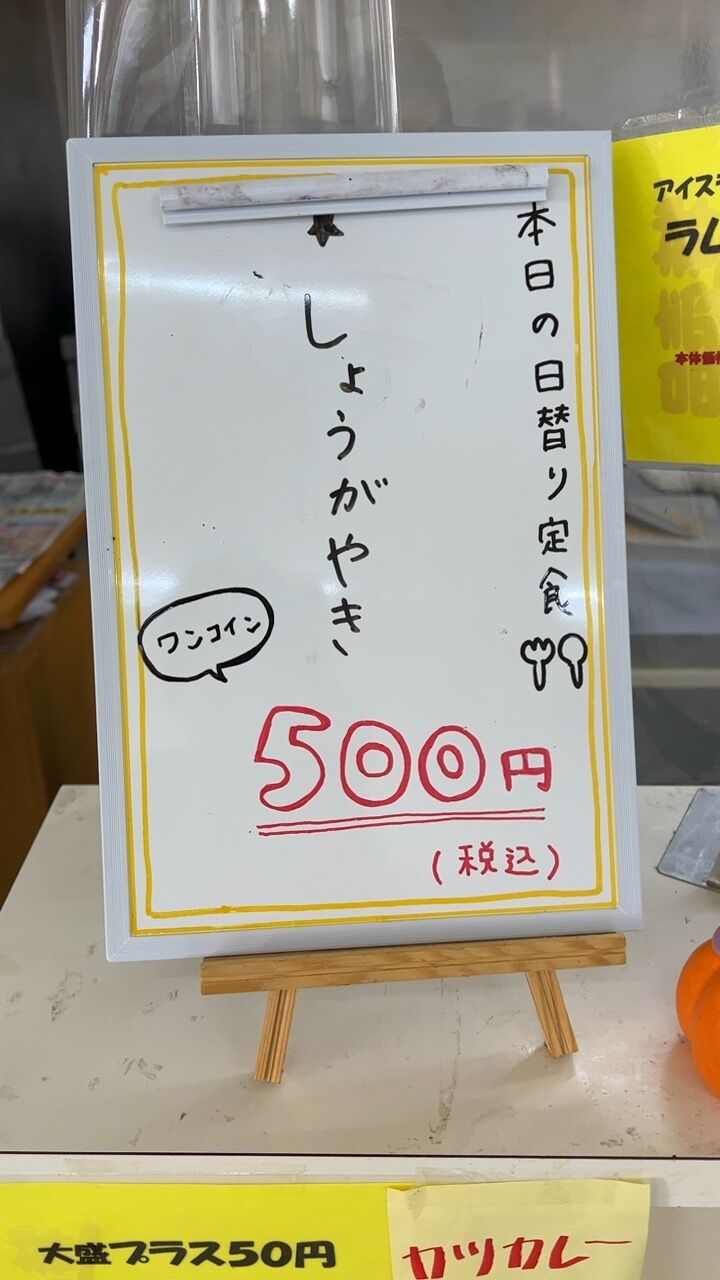 本日の日替り定食
★
しょうがやき
ワンコイン
500円
(税込)
アイス
ラム
本体価格
大盛プラス50円
カツカレー